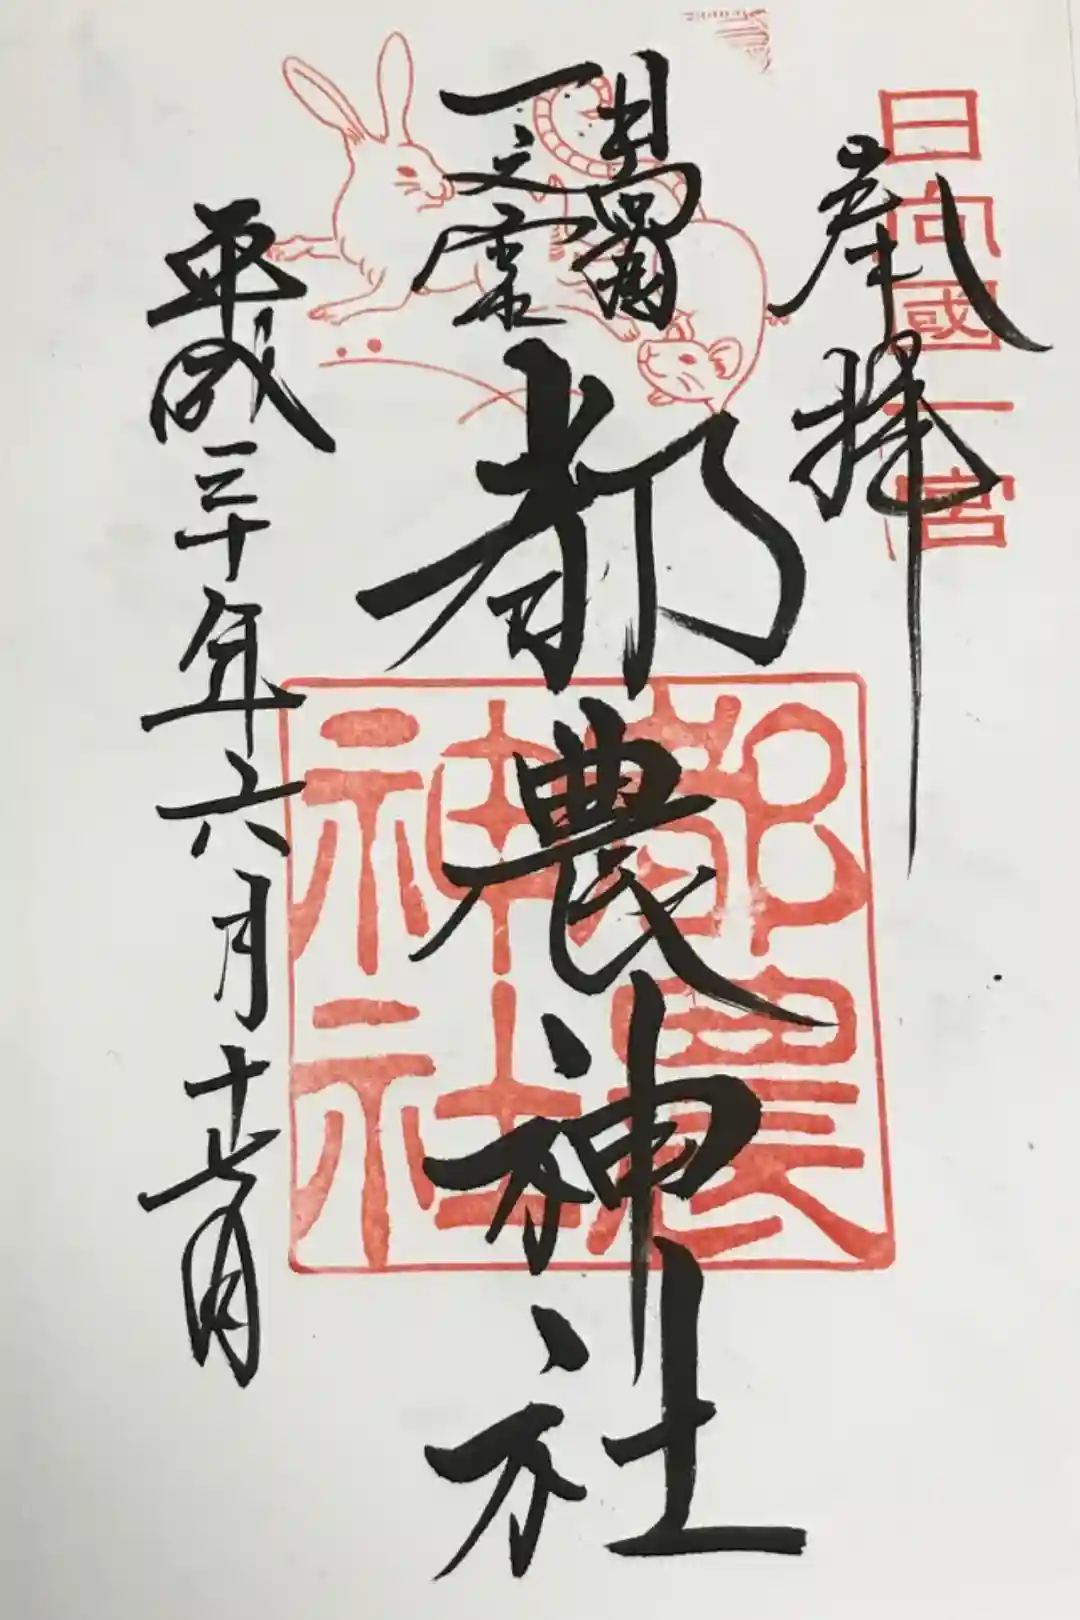 日向國一宮
奉拝
都農神社
都農
神社
平成三十年六月十七日